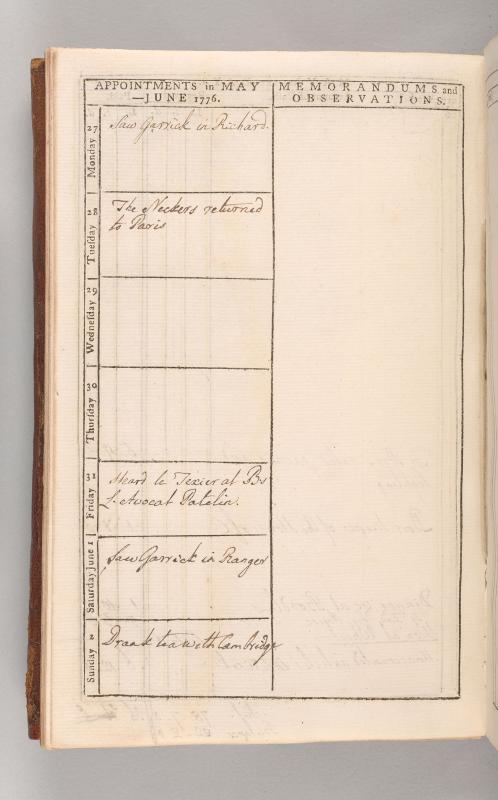 APPOINTMENTS in MAY
—JUNE 1776.
MEMORANDUMS and
OBSERVATIONS.
Monday 27
Saw Garrick in Richard.
Tueſday 28
The Neckers returned
to Paris
Wedneſday 29
Thurſday 30
Friday 31
Heard le Texier at Bs
L'Avocat Patelin.
Saturday June 1
Saw Garrick in Ranger
Sunday 2
Drank tea with Cambridge